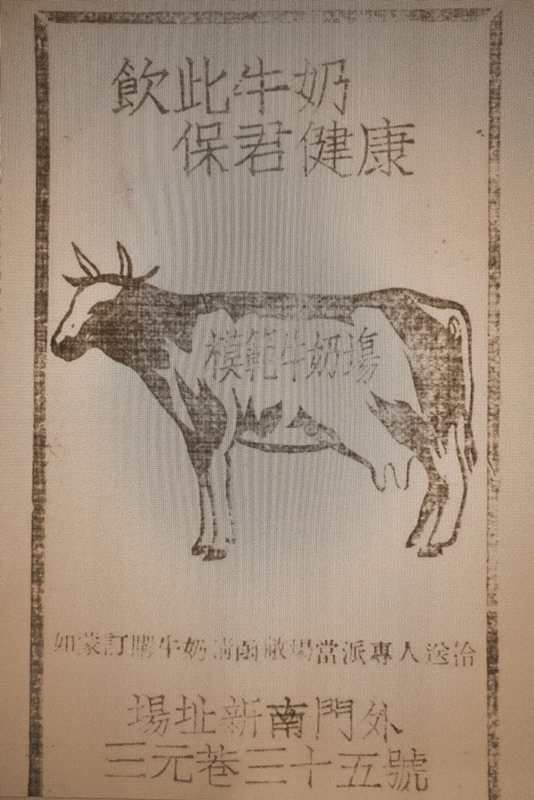 飲此牛奶
保君健康
模範牛奶場
如蒙訂購牛奶請函敝場當派專人送洽
場址新南門外
三元巷三十五號